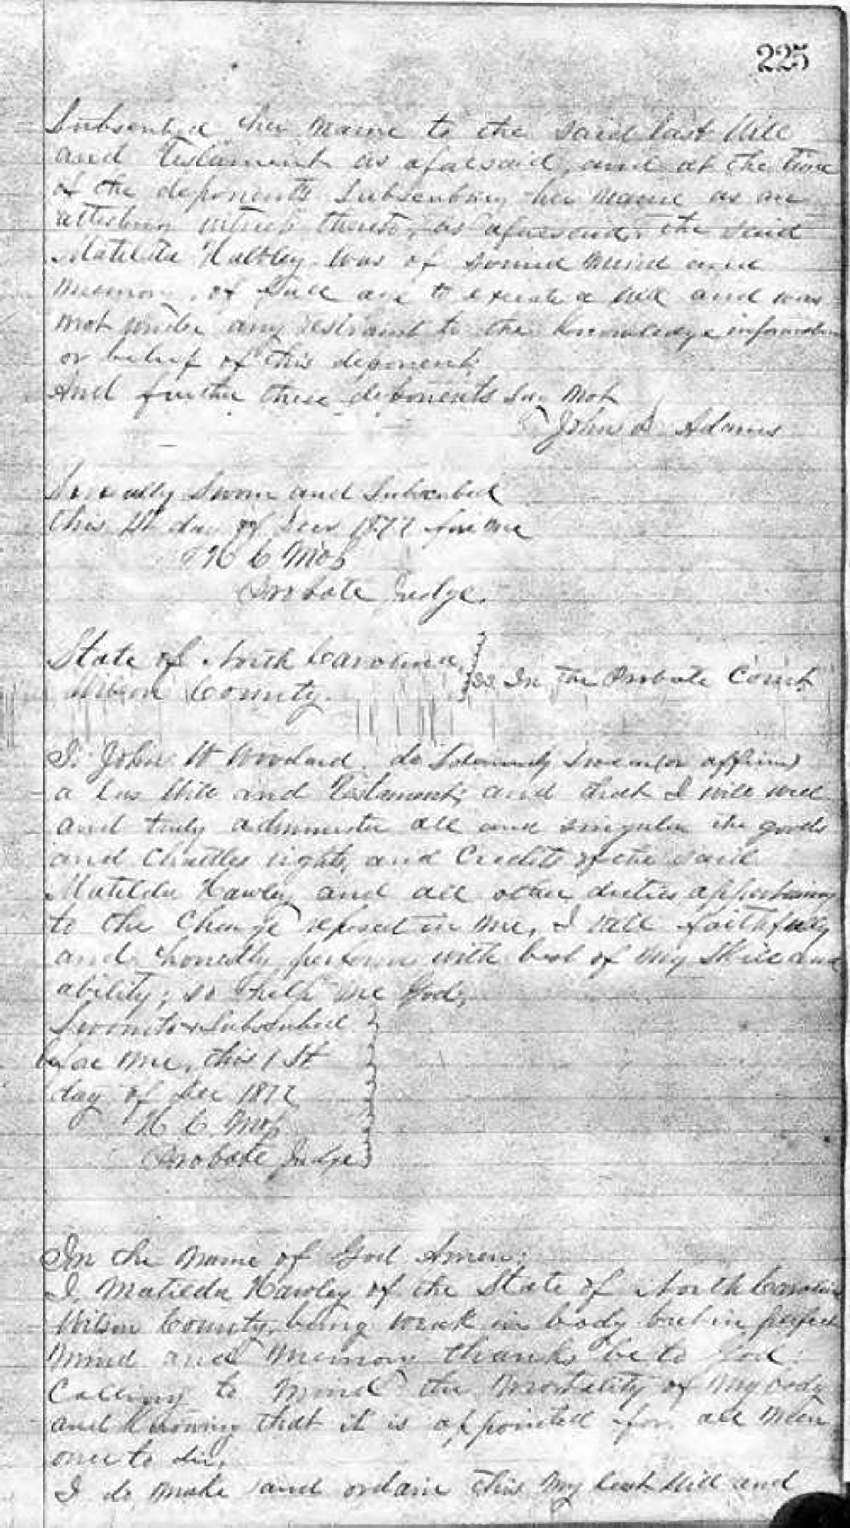 225
Subscribed her name to the said last Will
and Testament as aforesaid, and at the time
of the deponents subscribing her name as an
attesting witness thereto, as aforesaid, the said
Matilda was of sound mind and
memory, of full age to execute a will and was
not under any restraint to the knowledge information
or belief of this deponent,
And further these deponents say not
John B Adams
Severally Sworn and Subscribed
this day of 1877 fore me
H C Moss
Probate Judge.
State of North Carolina,
Wilson County. } ss In the Probate Court
I, John W Woodard do solemnly swear (or affirm)
a Will and Testament, and that I will well
and truly administer all and singular the goods
and Chattles rights, and Credits of the said
Matilda Hawley and all other duties appertaining
to the Charge reposed in me, I will faithfully
and honestly perform with best of my skill and
ability, so help me God,
Sworn to & Subscribed
before me, this 1 st
day of Dec 1877
H C Moss
Probate Judge
In the name of God Amen:
I Matilda Hawley of the State of North Carolina
Wilson County, being weak in body but in perfect
mind and memory thanks be to God:
Calling to mind the mortality of my body
and knowing that it is appointed for all men
once to die,
I do make and ordain this my last Will and